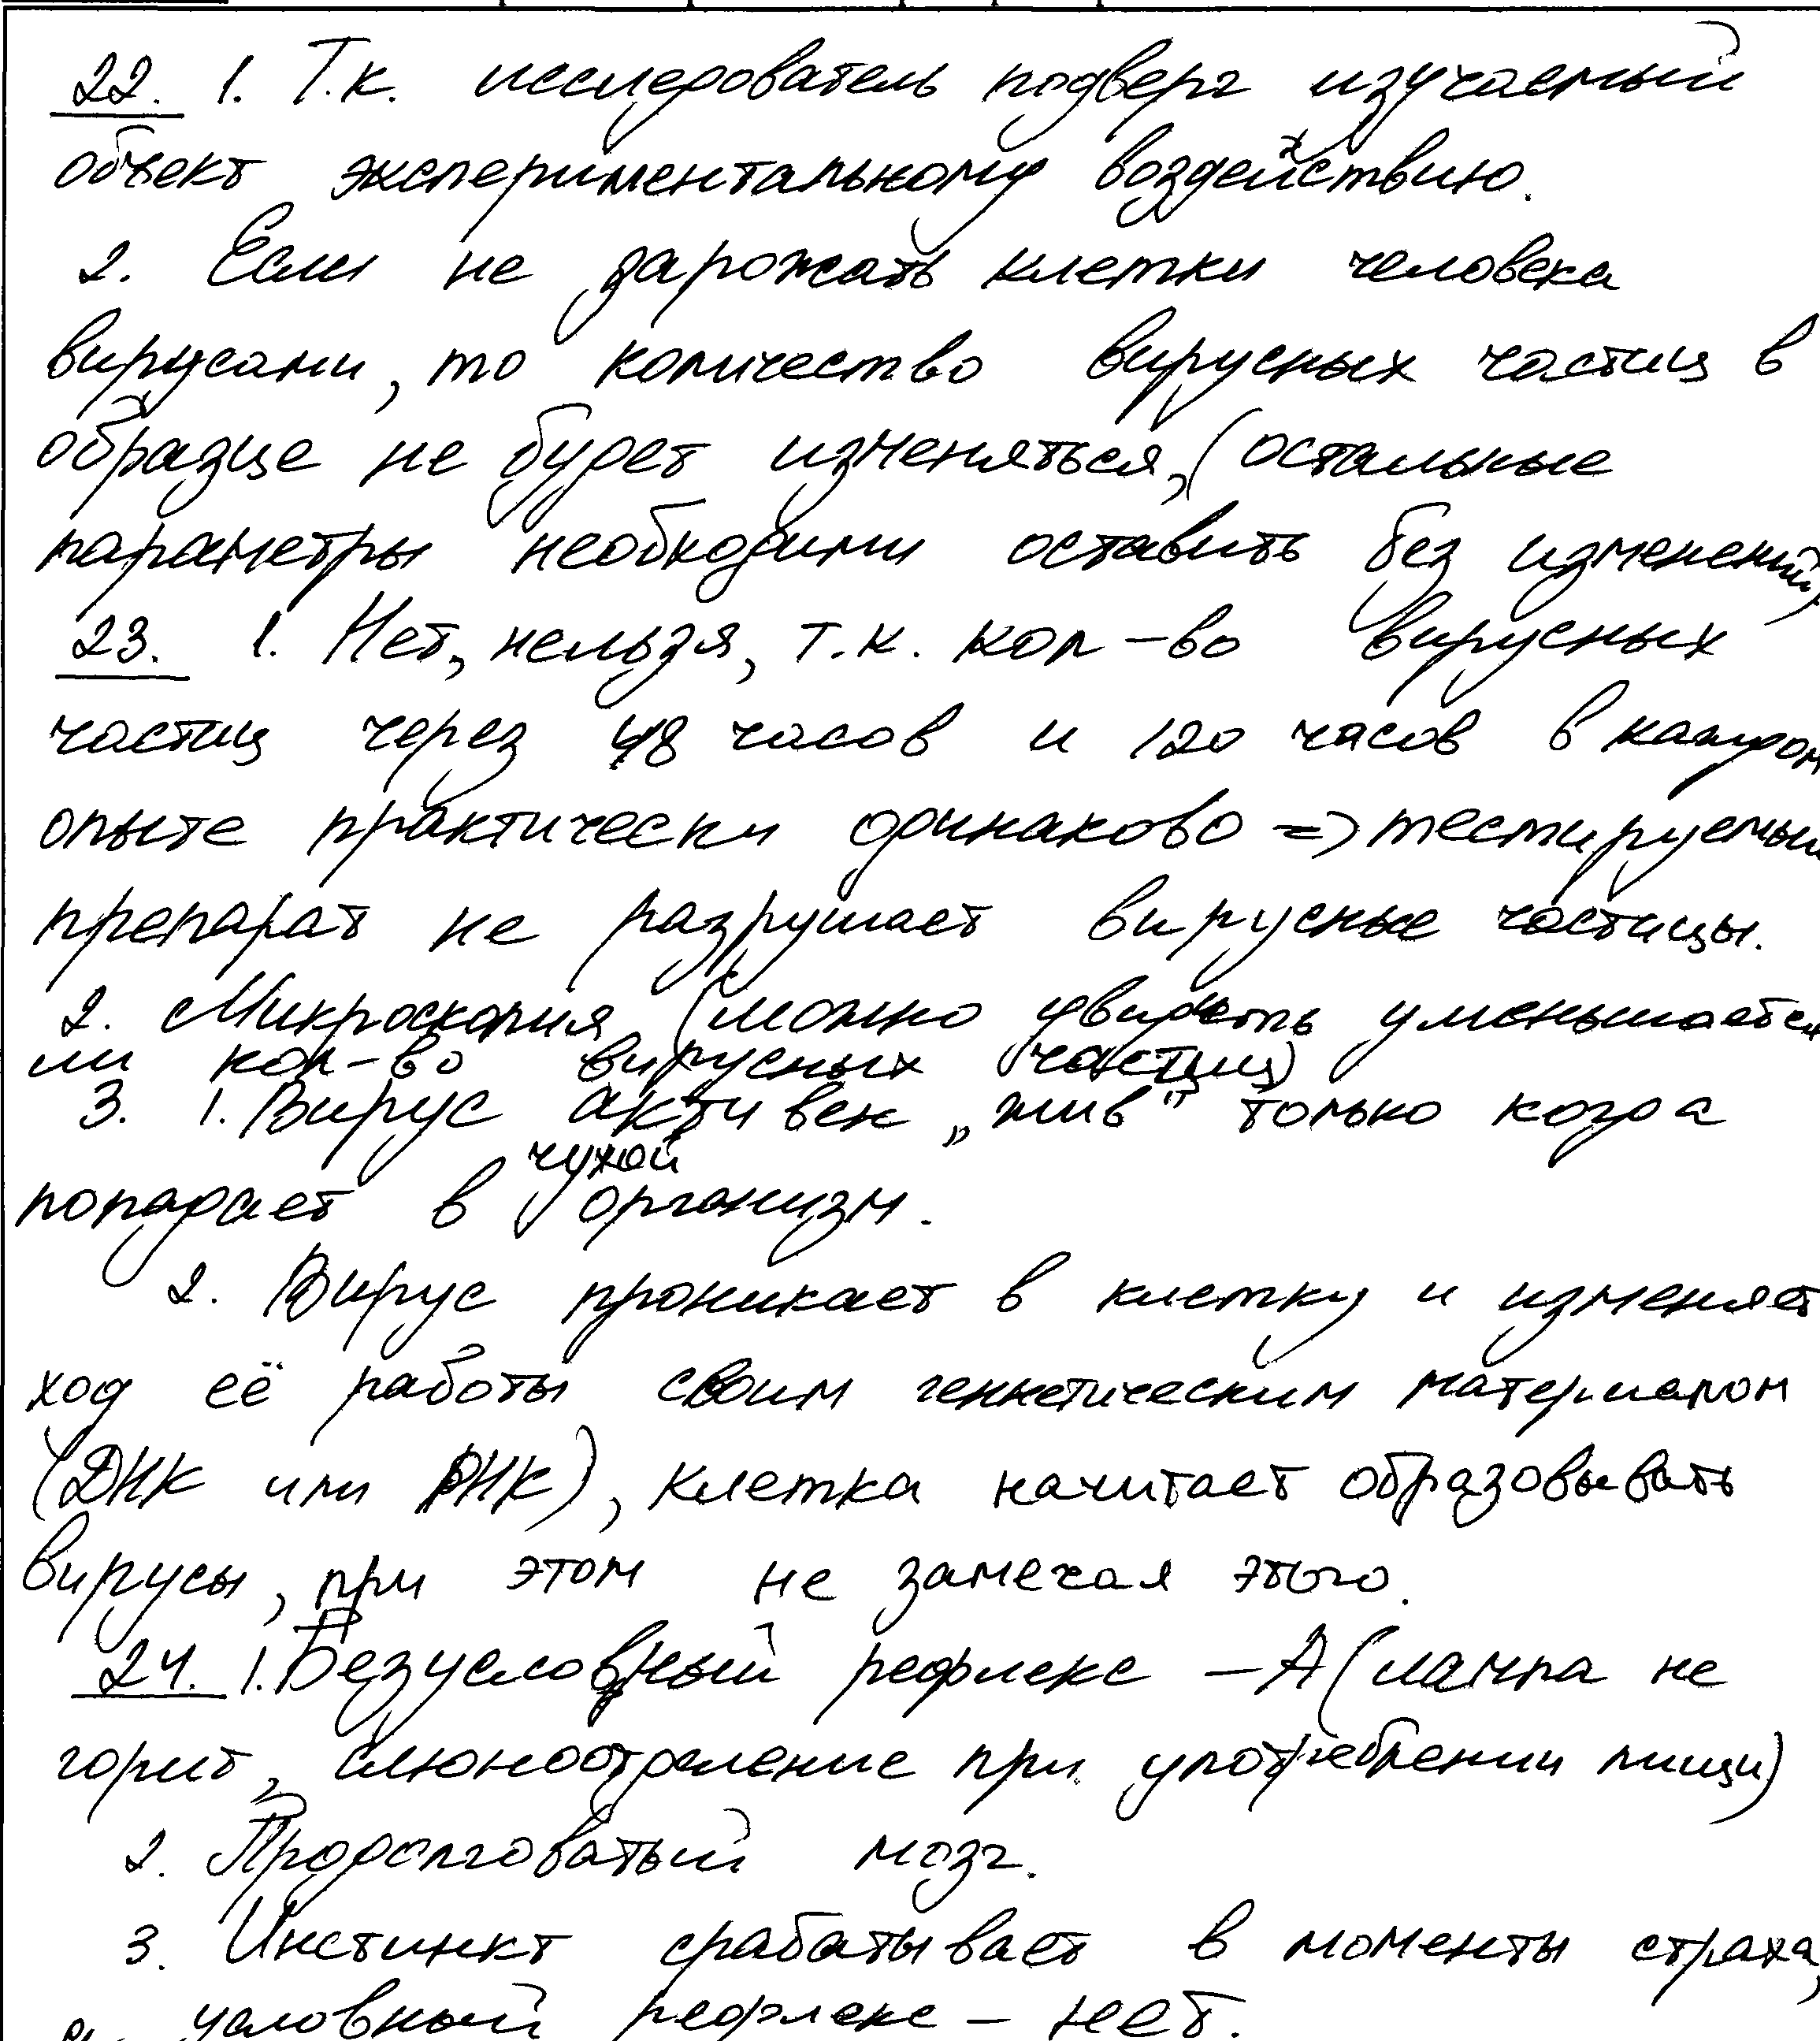 22. 1. Т.к. исследователь подверг изучаемый
объект экспериментальному воздействию.
2. Если не зарожать клетки человека
вирусами, то количество вирусных частиц в
образце не будет изменяться, (остальные
параметры необходими оставить без изменений)
23. 1. Нет, нельзя, т.к. кол-во вирусных
частиц через 48 часов и 120 часов в каждом
опыте практически одинаково => тестируемый
препарат не разрушает вирусные частицы.
2. Микроскопия (можно увидеть уменьшается
ли кол-во вирусных частиц)
3. 1. Вирус активен „жив" только когда
попадает в чужой организм.
2. Вирус проникает в клетку и изменяет
ход её работы своим геннетическим материалом
(ДНК или РНК), клетка начитает образовывать
вирусы, при этом не замечая этого.
24. 1. Безусловный рефлекс – А (лампа не
горит, слюноотделение при употреблении пищи)
2. Продолговатый мозг.
3. Инстинкт срабатывает в моменты страха,
а условный рефлекс – нет.